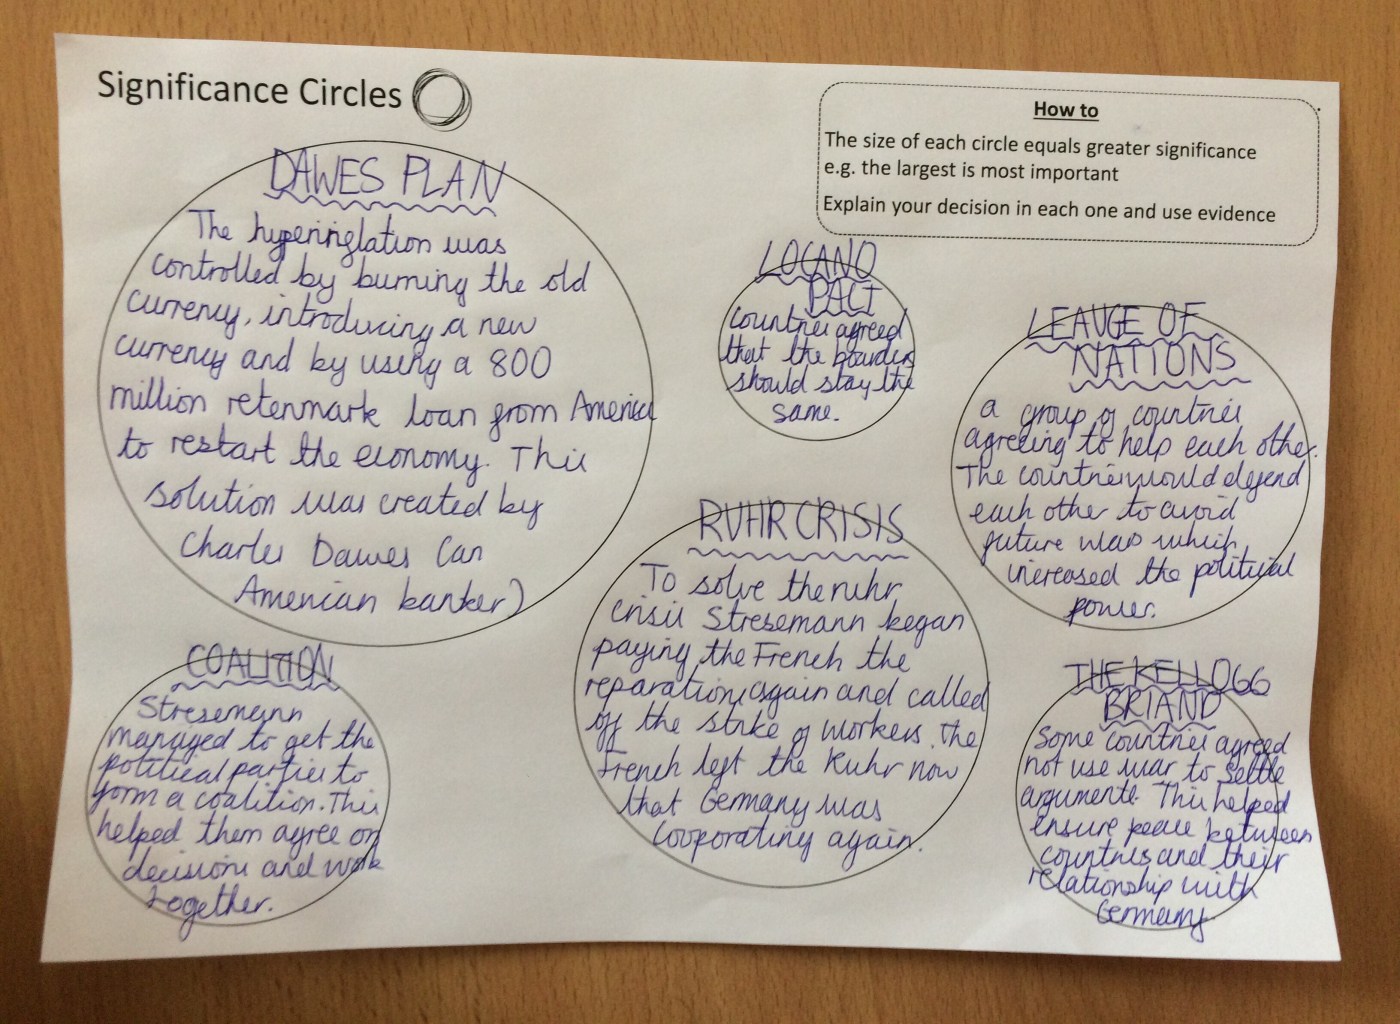 Significance Circles
How to
The size of each circle equals greater significance
e.g. the largest is most important
Explain your decision in each one and use evidence
DAWES PLAN
The hyperinglation was
controlled by burning the old
currency, introducing a new
currency and by using a 800
million retenmark loan from America
to restart the economy. This
solution was created by
Charles Dawes (an
American banker)
LOCANO
PACT
countries agreed
that the boarders
should stay the
same.
LEAUGE OF
NATIONS
a group of countries
agreeing to help each other.
The countries would defend
each other to avoid
future wars which
increased the political
power.
RUHR CRISIS
To solve the ruhr
crisis Stresemann began
paying the French the
reparations again and called
off the strike of workers. The
French left the Ruhr now
that Germany was
cooporating again.
COALITION
Stresemann
managed to get the
political parties to
form a coalition. This
helped them agree on
decisions and work
together.
THE KELLOGG
BRIAND
Some countries agreed
not use war to settle
arguments. This helped
ensure peace between
countries and their
relationship with
Germany.